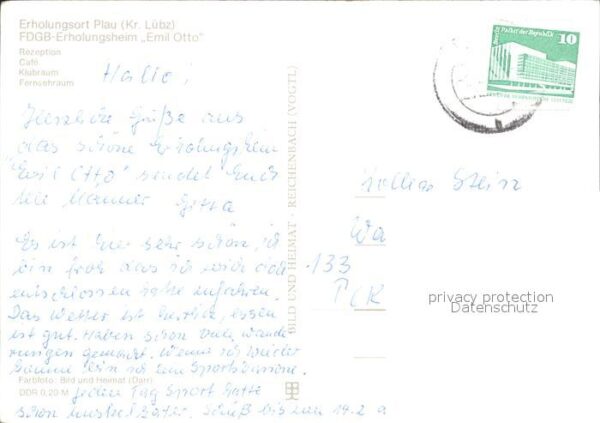 Erholungsort Plau (Kr. Lübz)
FDGB-Erholungsheim „Emil Otto"
Rezeption
Café
Klubraum
Fernsehraum
Hallo!
Herzliche Grüße aus
das schöne Erholungsheim
"Emil Otto" sendet Euch
Männer Gitta
Es ist hier sehr schön, ich
bin froh das ich mich doch
entschlossen habe
Das Wetter ist herrlich, essen
ist gut. Haben schon viele Wande
rungen gemacht. Wenn ich wieder
komme bin ich zum
jeden Tag Sport hatte
schon Muskelkater. bis zum 14.2
Farbfoto: Bild und Heimat (Darr)
DDR 0,20 M
BILD UND HEIMAT · REICHENBACH (VOGTL)
Palast der Republik
10
DDR
Wa
133
PCK
privacy protection
Datenschutz